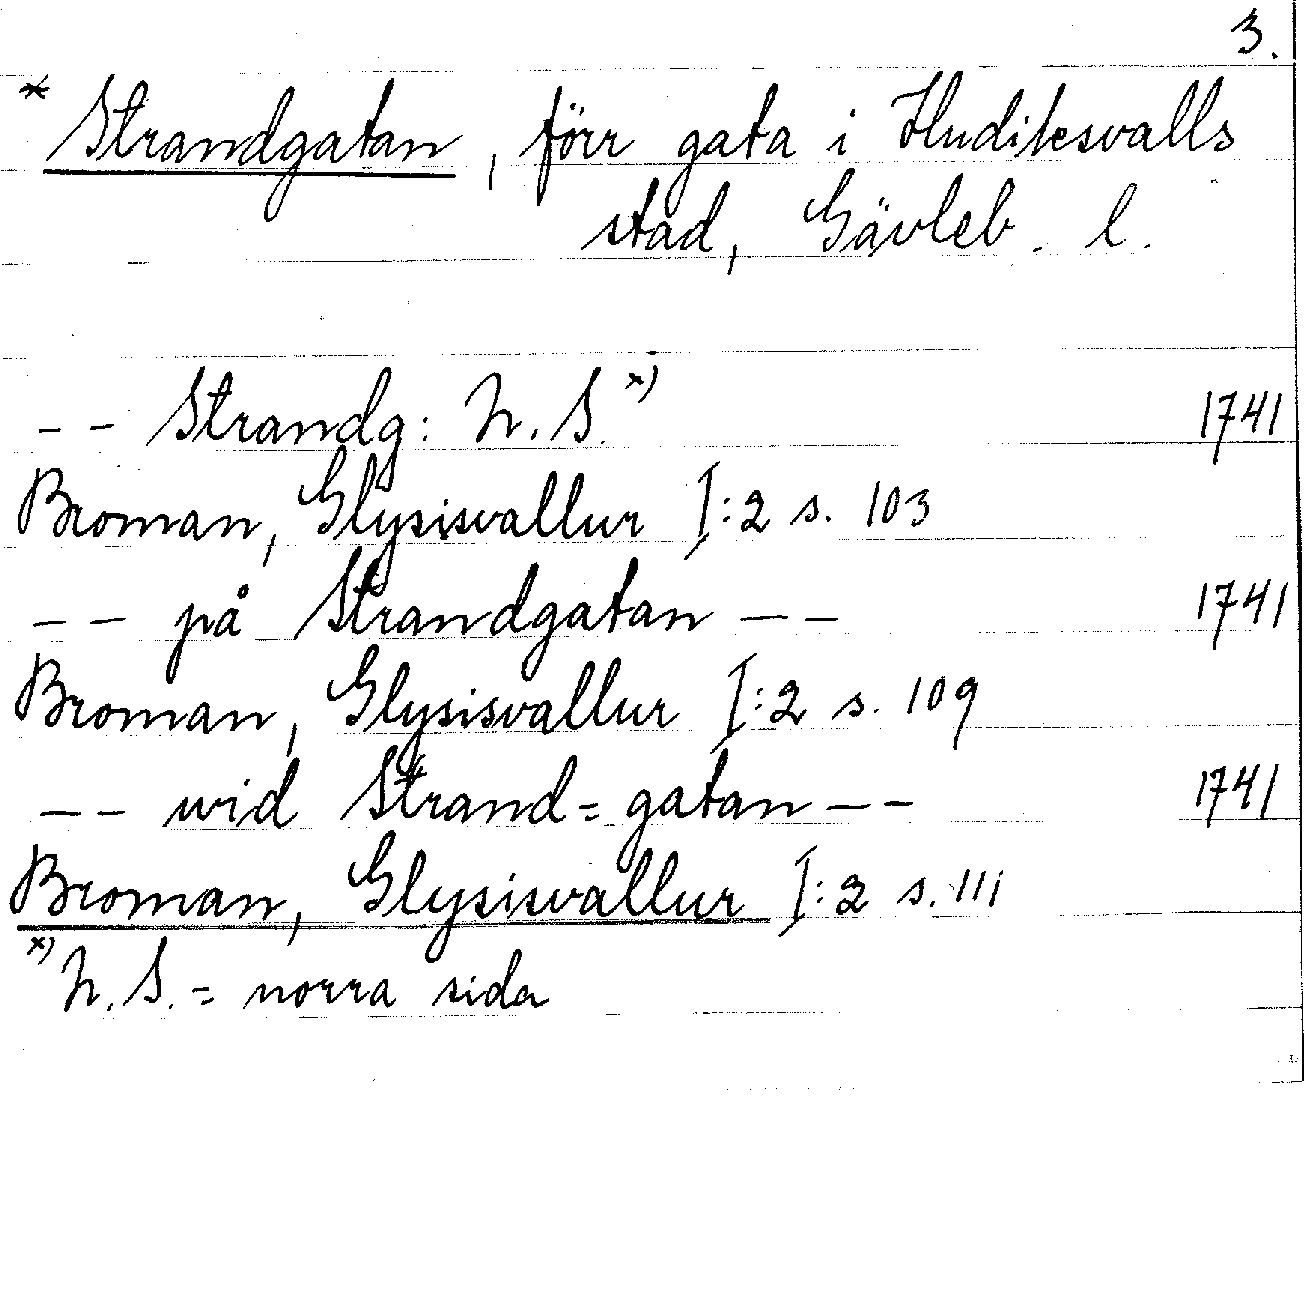 3.
* Strandgatan, förr gata i Hudiksvalls
stad, Gävleb. l.
-- Strandg: N. S. x) 1741
Broman, Glysisvallur I:2 s. 103
-- på Strandgatan -- 1741
Broman, Glysisvallur I:2 s. 109
-- wid Strand=gatan -- 1741
Broman, Glysisvallur I:2 s. 111
x) N. S. = norra sida